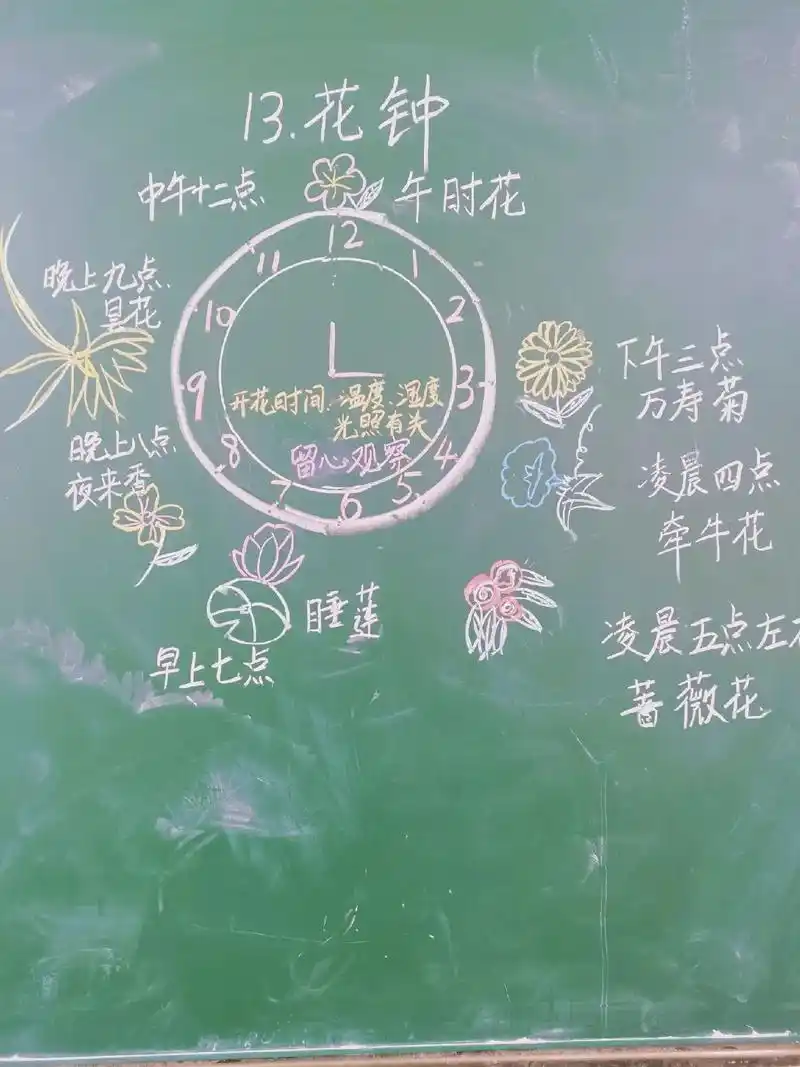 13.花钟
中午十二点
午时花
12
1
2
3
4
5
6
7
8
9
10
11
开花时间.温度.湿度
光照有关
留心观察
下午三点
万寿菊
凌晨四点
牵牛花
凌晨五点左右
蔷薇花
睡莲
早上七点
晚上八点
夜来香
晚上九点
昙花